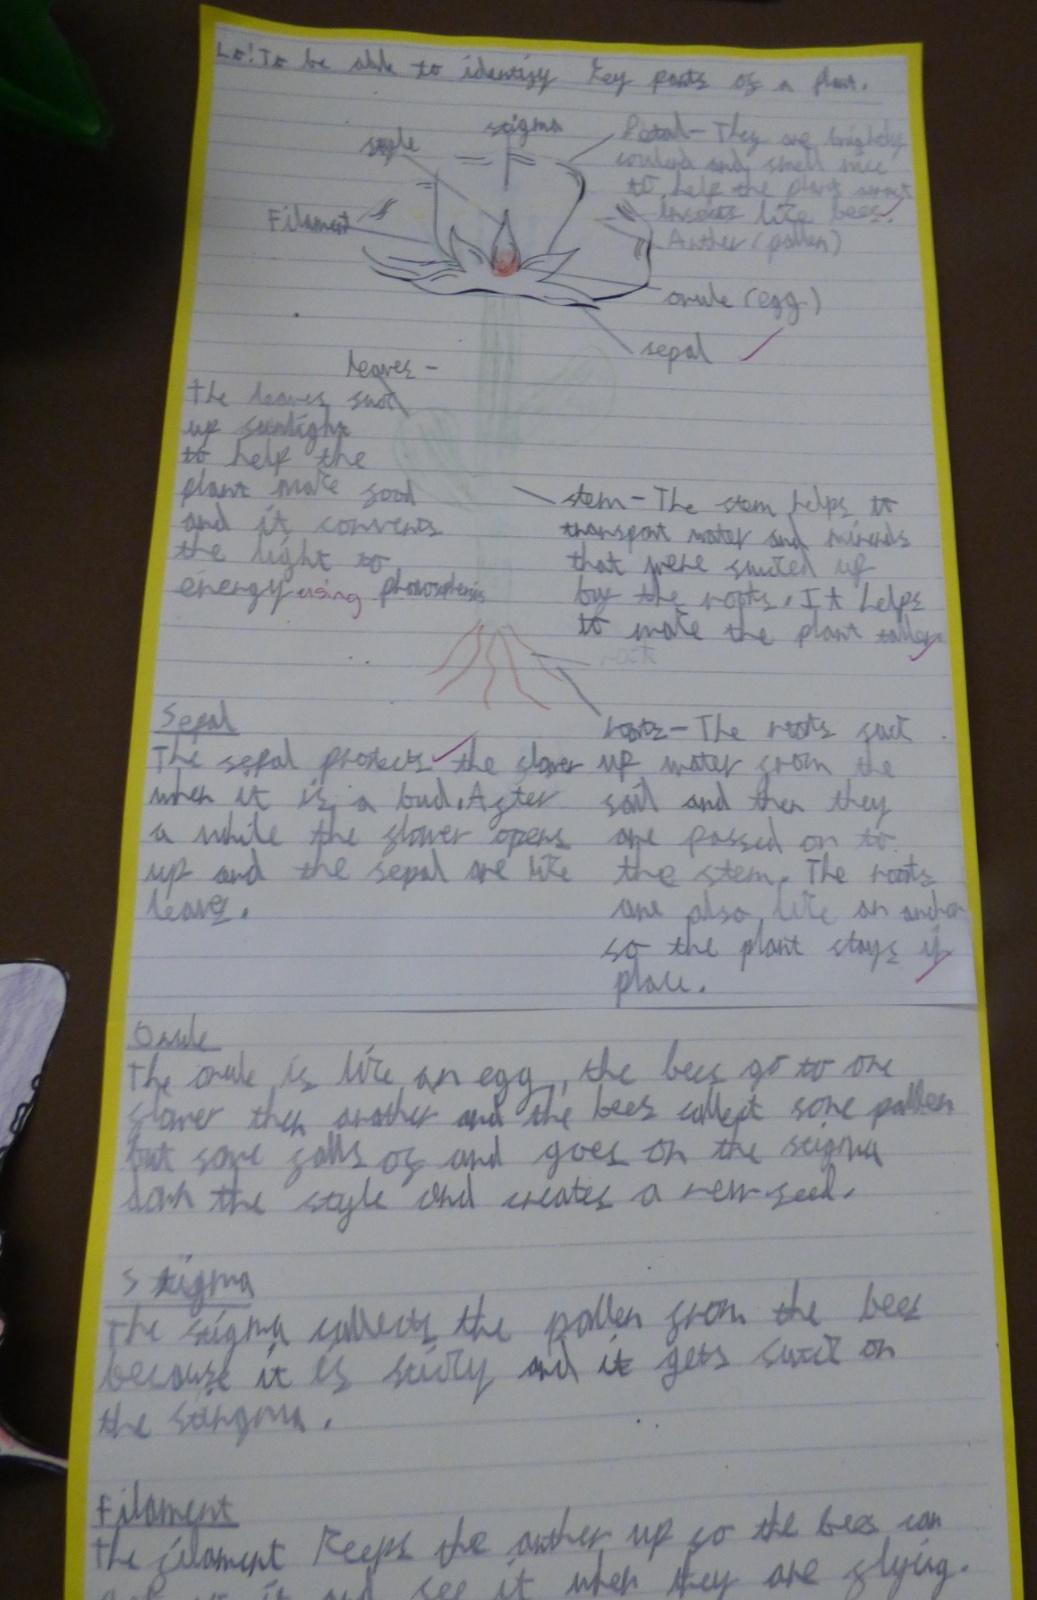 LO: To be able to identify key parts of a plant.
stigma
style
Filament
Petal- They are brightly
and smell nice
to help the plant
insects like bees.
Anther (pollen)
ovule (egg)
sepal
leaves -
the leaves suck
up sunlight
to help the
plant make food
and it convents
the light to
energy using
stem- The stem helps to
transport water and
that were sucked up
by the roots. It helps
to make the plant taller
roots- The roots suck
up water from the
soil and then they
are passed on to
the stem. The roots
are also like an anchor
so the plant stays
place.
Sepal
The sepal protects the flower
when it is a bud. After
a while the flower opens
up and the sepal are like
leaves.
Ovule
The ovule is like an egg, the bees go to one
flower then another and the bees collect some pollen
but some falls of and goes on the stigma
down the style and creates a new seed.
Stigma
The stigma collects the pollen from the bees
because it is sticky and it gets suck on
the
Filament
The filament keeps the anther up so the bees can
it and see it when they are flying.